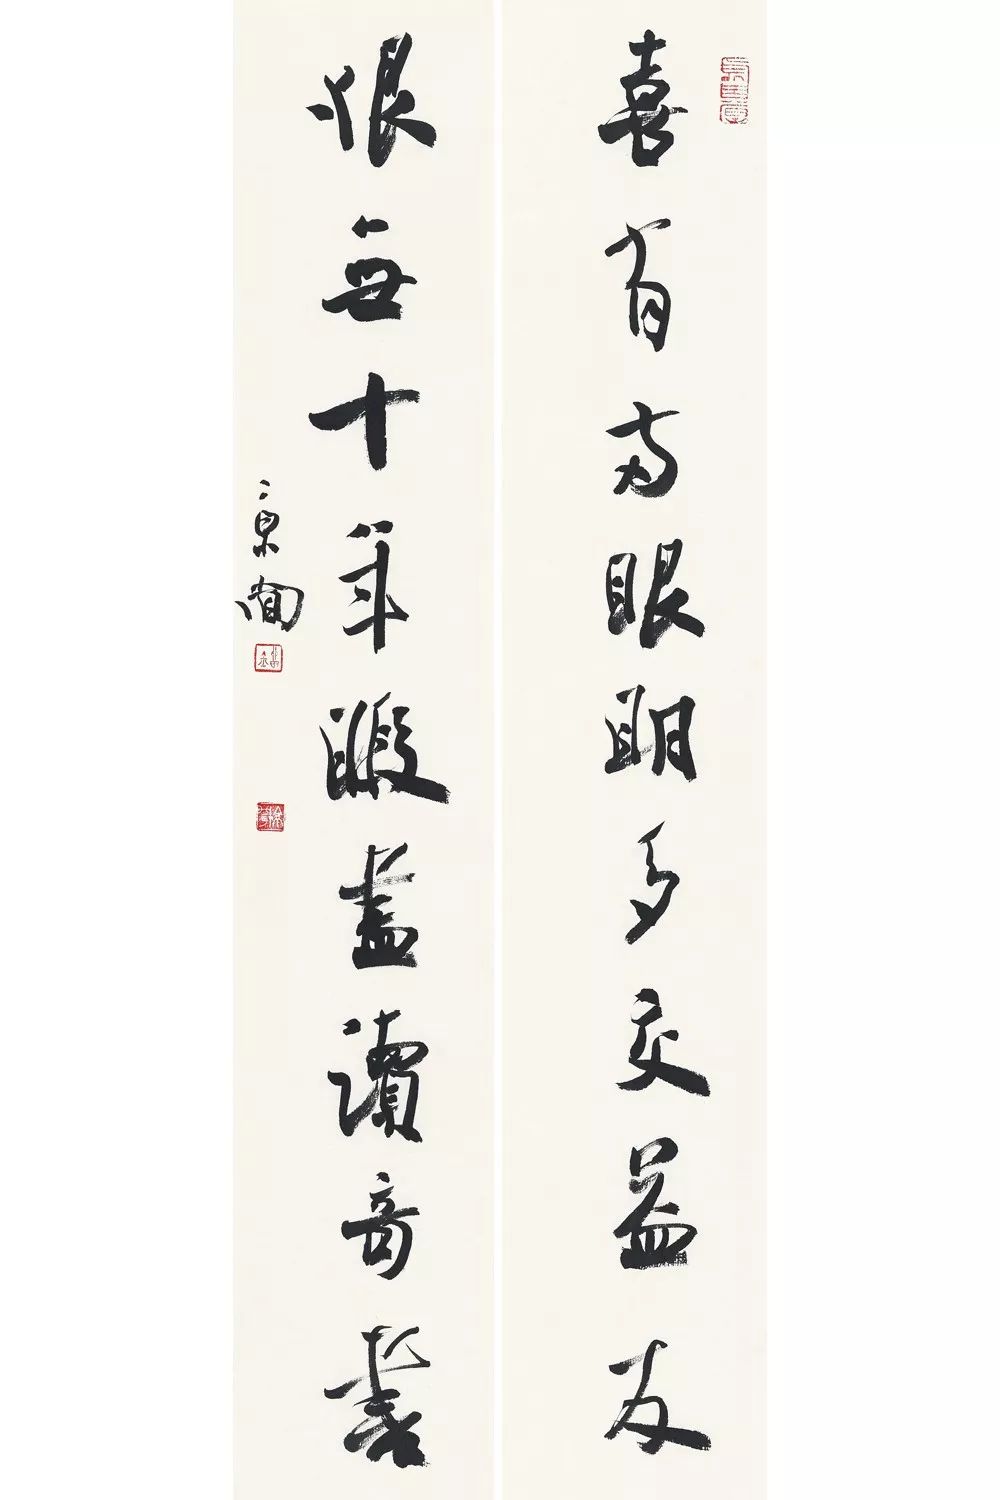 喜有兩眼明多交益友
恨無十年暇盡讀奇書